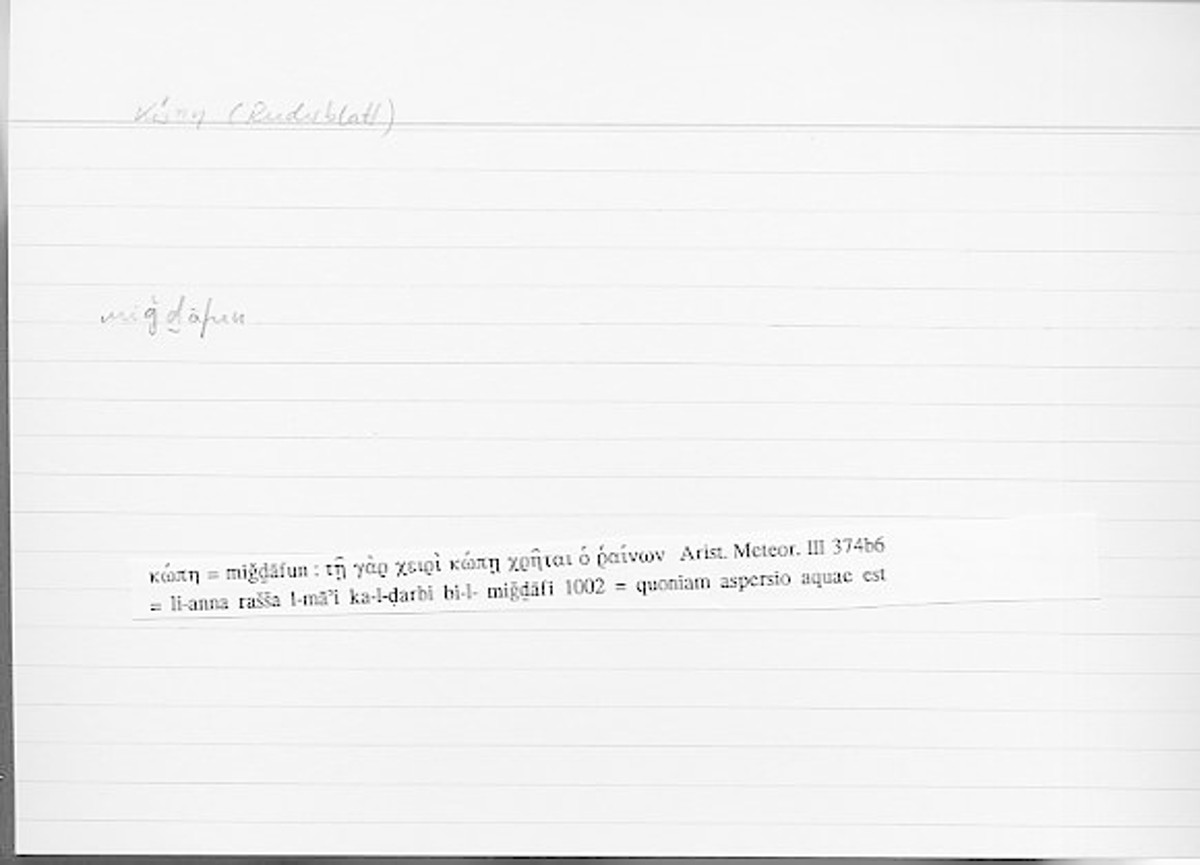 κώπη (Ruderblatt)
miǧḏāfun
κώπη = miǧḏāfun : τῇ γὰρ χειρὶ κώπῃ χρῆται ὁ ῥαίνων Arist. Meteor. III 374b6
= li-anna rašša l-māʾi ka-l-ḍarbi bi-l- miǧḏāfi 1002 = quoniam aspersio aquae est